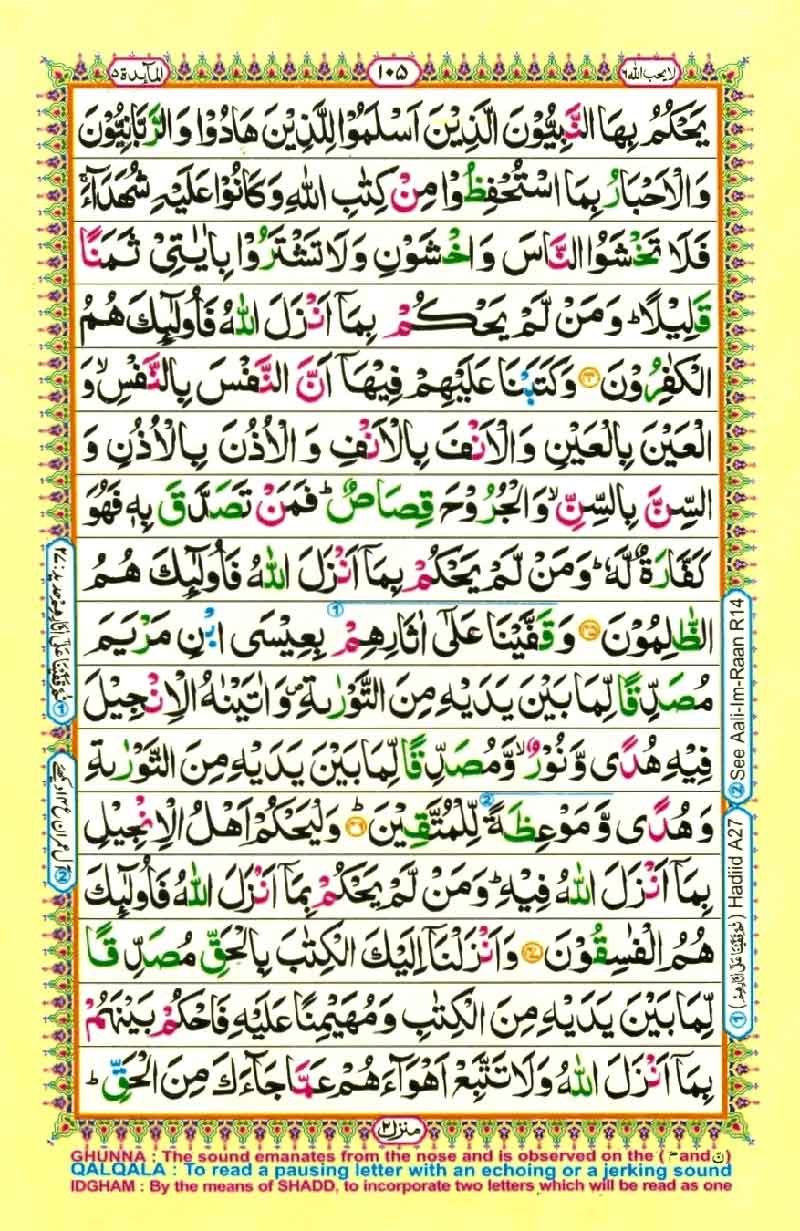 المآىِٕدة ٥
١٠٥
لا يحب الله ٦
يَحْكُمُ بِهَا النَّبِيُّوْنَ الَّذِيْنَ اَسْلَمُوْا لِلَّذِيْنَ هَادُوْا وَالرَّبّٰنِيُّوْنَ
وَالْاَحْبَارُ بِمَا اسْتُحْفِظُوْا مِنْ كِتٰبِ اللّٰهِ وَكَانُوْا عَلَيْهِ شُهَدَآءَ ۚ
فَلَا تَخْشَوُا النَّاسَ وَاخْشَوْنِ وَلَا تَشْتَرُوْا بِاٰيٰتِىْ ثَمَنًا
قَلِيْلًا ؕ وَمَنْ لَّمْ يَحْكُمْ بِمَآ اَنْزَلَ اللّٰهُ فَاُولٰٓئِكَ هُمُ
الْكٰفِرُوْنَ ﴿۴۴﴾ وَكَتَبْنَا عَلَيْهِمْ فِيْهَآ اَنَّ النَّفْسَ بِالنَّفْسِ ۙ وَ
الْعَيْنَ بِالْعَيْنِ وَالْاَنْفَ بِالْاَنْفِ وَالْاُذُنَ بِالْاُذُنِ وَ
السِّنَّ بِالسِّنِّ ۙ وَالْجُرُوْحَ قِصَاصٌ ؕ فَمَنْ تَصَدَّقَ بِهٖ فَهُوَ
كَفَّارَةٌ لَّهٗ ؕ وَمَنْ لَّمْ يَحْكُمْ بِمَآ اَنْزَلَ اللّٰهُ فَاُولٰٓئِكَ هُمُ
الظّٰلِمُوْنَ ﴿۴۵﴾ وَقَفَّيْنَا عَلٰٓى اٰثَارِهِمْ بِعِيْسَى ابْنِ مَرْيَمَ
مُصَدِّقًا لِّمَا بَيْنَ يَدَيْهِ مِنَ التَّوْرٰىةِ ۪ وَاٰتَيْنٰهُ الْاِنْجِيْلَ
فِيْهِ هُدًى وَّنُوْرٌ ۙ وَّمُصَدِّقًا لِّمَا بَيْنَ يَدَيْهِ مِنَ التَّوْرٰىةِ
وَهُدًى وَّمَوْعِظَةً لِّلْمُتَّقِيْنَ ﴿۴۶﴾ وَلْيَحْكُمْ اَهْلُ الْاِنْجِيْلِ
بِمَآ اَنْزَلَ اللّٰهُ فِيْهِ ؕ وَمَنْ لَّمْ يَحْكُمْ بِمَآ اَنْزَلَ اللّٰهُ فَاُولٰٓئِكَ
هُمُ الْفٰسِقُوْنَ ﴿۴۷﴾ وَاَنْزَلْنَآ اِلَيْكَ الْكِتٰبَ بِالْحَقِّ مُصَدِّقًا
لِّمَا بَيْنَ يَدَيْهِ مِنَ الْكِتٰبِ وَمُهَيْمِنًا عَلَيْهِ فَاحْكُمْ بَيْنَهُمْ
بِمَآ اَنْزَلَ اللّٰهُ وَلَا تَتَّبِعْ اَهْوَآءَهُمْ عَمَّا جَآءَكَ مِنَ الْحَقِّ ؕ
② See Aali-Im-Raan R14
① Hadiid A27
منزل ٢
GHUNNA : The sound emanates from the nose and is observed on the ( ـّ and ن )
QALQALA : To read a pausing letter with an echoing or a jerking sound
IDGHAM : By the means of SHADD, to incorporate two letters which will be read as one